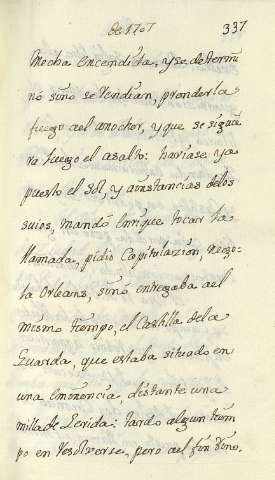 de 1707
337
Mecha encendida, y se determi
nó sino se vendian, prender la
fuego ael anochor, y que se siguie
ra luego el asalto: haviase ya
puesto el Sol, y a instancias delos
suios, mandó Enrique tocar la
llamada, pidio Capitulazion, nego-
la Orleans, sinó entregaba ael
mismo tiempo, el Castillo dela
Guarda, que estaba situado en
una eminencia, distante una
milla de Lerida: tardo algun tiem
po en resolverse, pero ael fin vino.